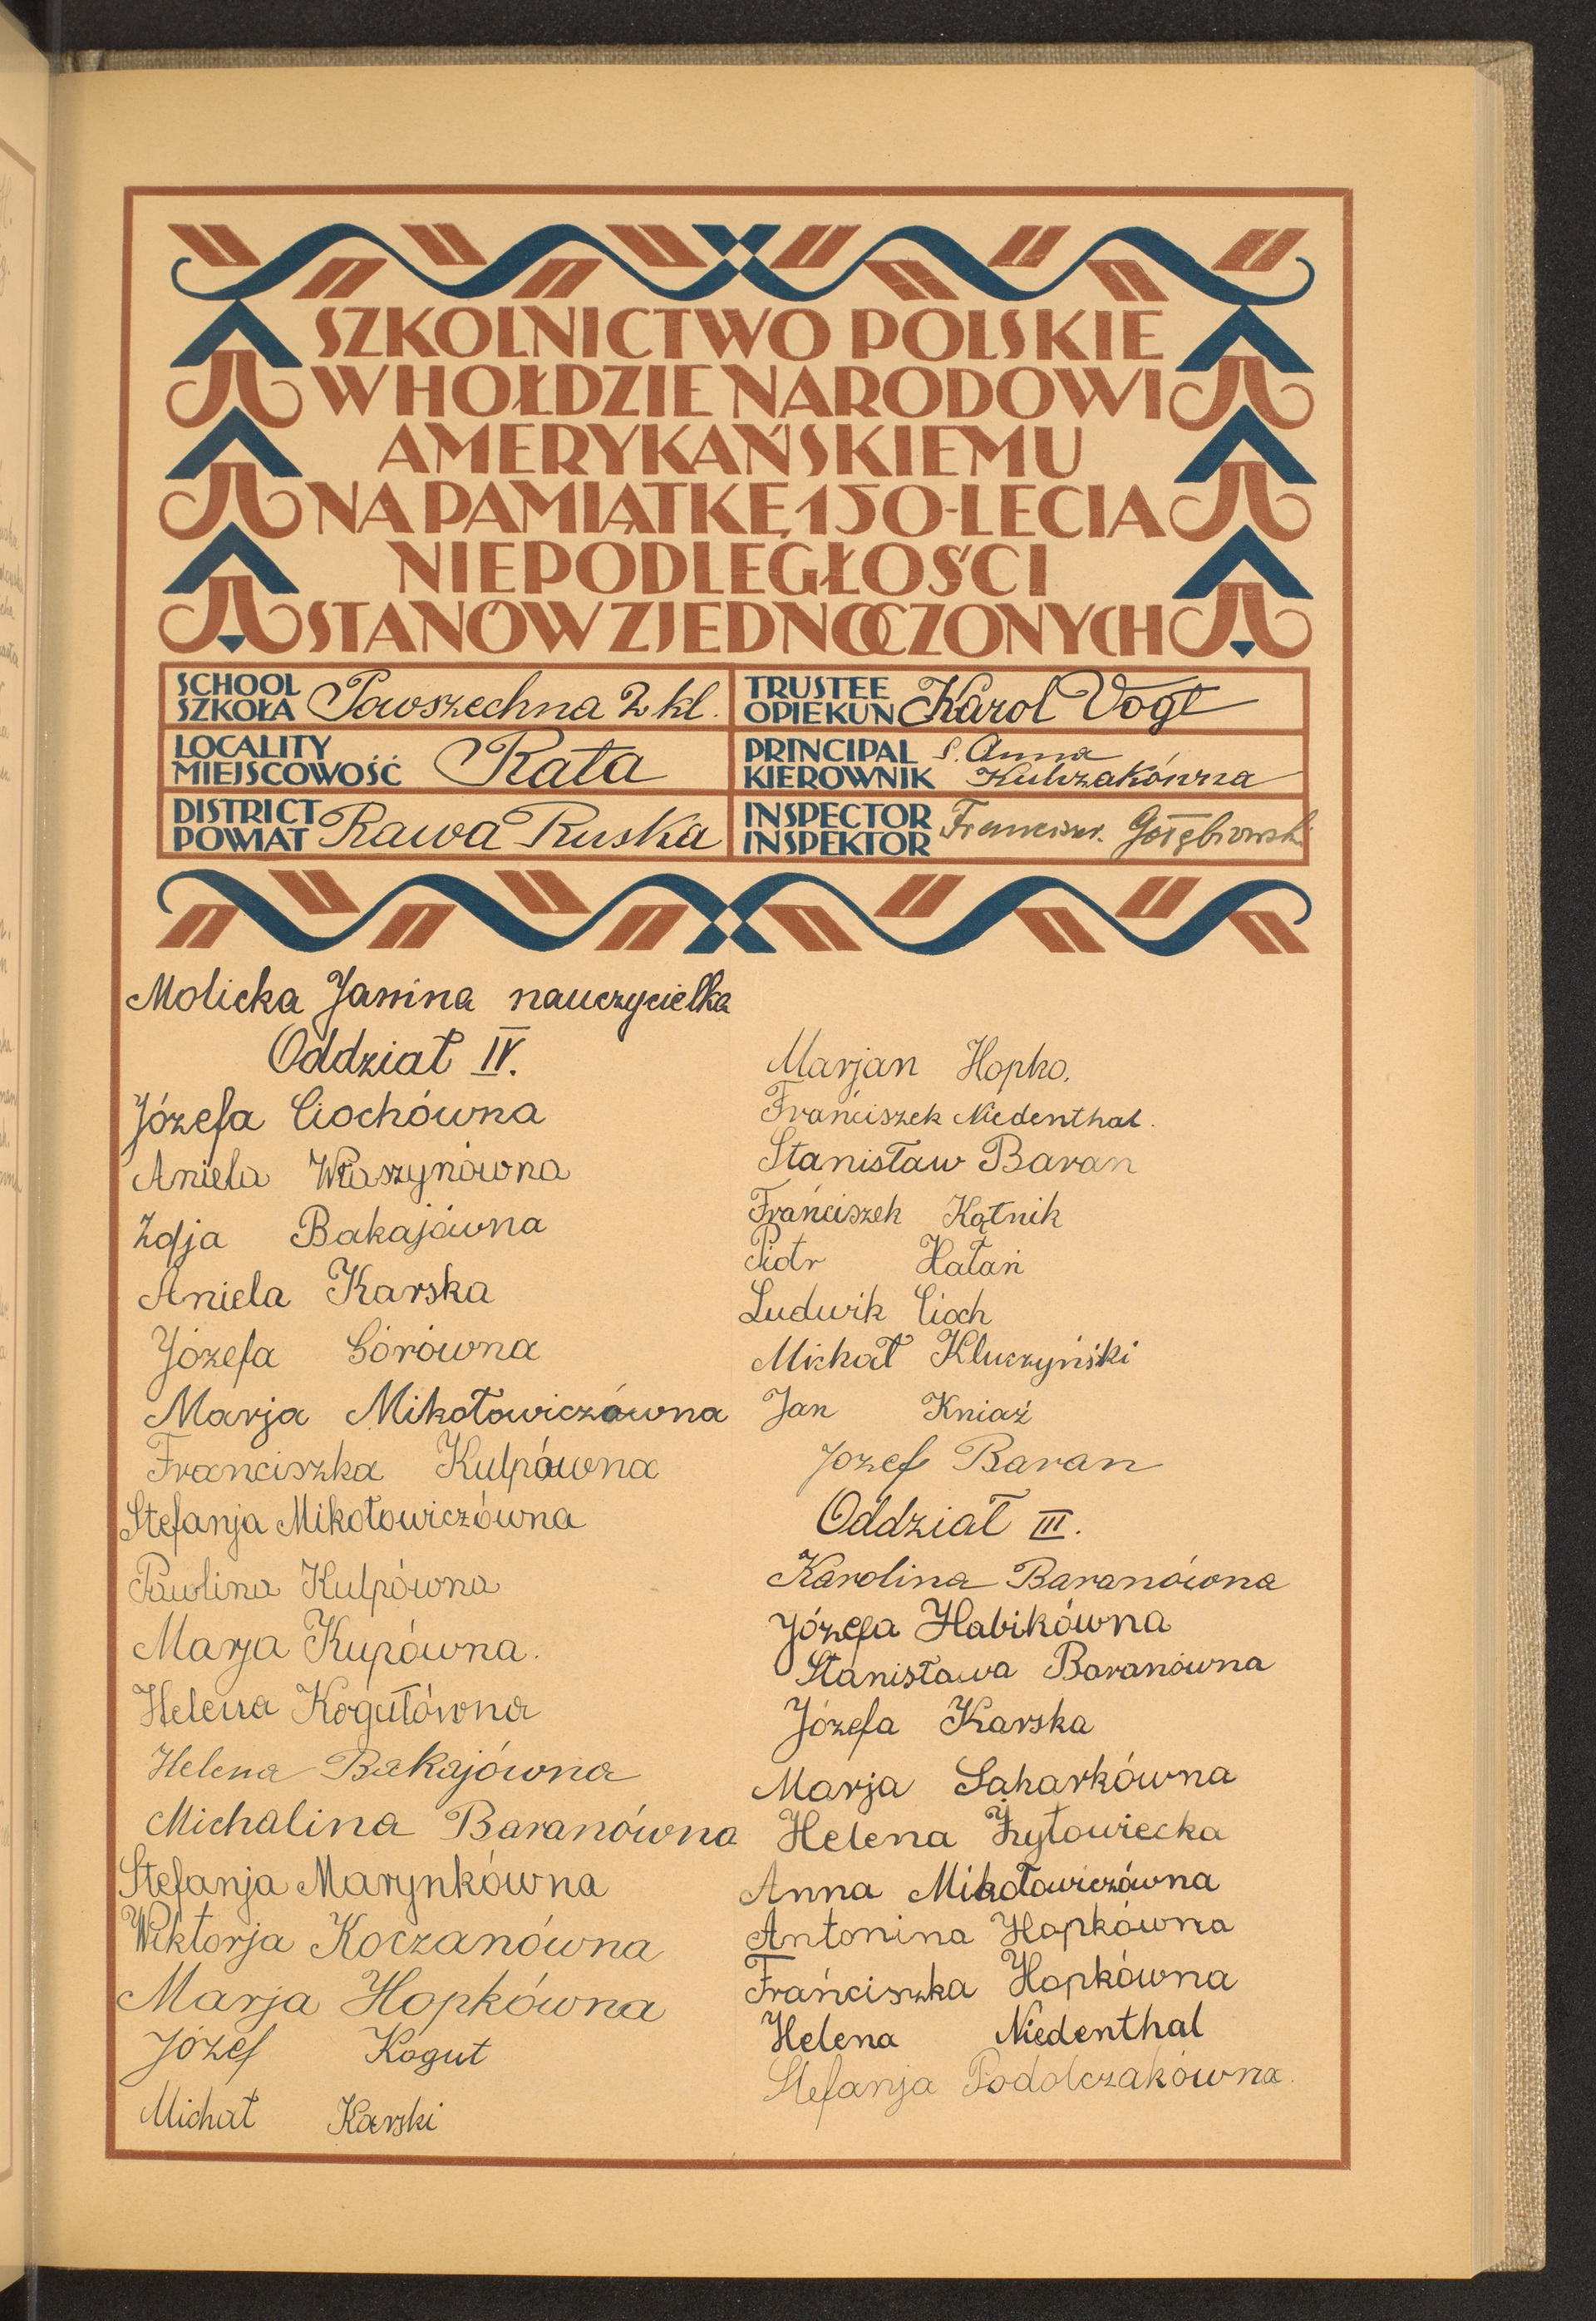 SZKOLNICTWO POLSKIE
W HOŁDZIE NARODOWI
AMERYKAŃSKIEMU
NA PAMIĄTKĘ 150-LECIA
NIEPODLEGŁOŚCI
STANÓW ZJEDNOCZONYCH
SCHOOL
SZKOŁA Powszechna 2 kl.
TRUSTEE
OPIEKUN Karol Vogt
LOCALITY
MIEJSCOWOŚĆ Rata
PRINCIPAL S. Anna
KIEROWNIK Kulczakówna
DISTRICT
POWIAT Rawa Ruska
INSPECTOR
INSPEKTOR Gołębiowski
Molicka Janina nauczycielka
Oddział IV.
Józefa Ciochówna
Aniela Własżynówna
Zofja Bakajówna
Aniela Karska
Józefa Górówna
Marja Mikołowiczówna
Franciszka Kulpówna
Stefanja Mikołowiczówna
Pawlina Kulpówna
Marja Kupówna.
Helena Kogutówna
Helena Bakajówna
Michalina Baranówna
Stefanja Marynkówna
Wiktorja Koczanówna
Marja Hopkówna
Józef Kogut
Michał Karski
Marjan Hopko.
Frańciszek Niedenthal.
Stanisław Baran
Frańciszek Kątnik
Piotr Hałań
Ludwik Cioch
Michał Kluczyński
Jan Kniaź
Jozef Baran
Oddział III.
Karolina Baranówna
Józefa Habikówna
Stanisława Baranówna
Józefa Karska
Marja Saharkówna
Helena Żytowiecka
Anna Mikołowiczówna
Antonina Hopkówna
Frańciszka Hopkówna
Helena Niedenthal
Stefanja Podolczakówna.